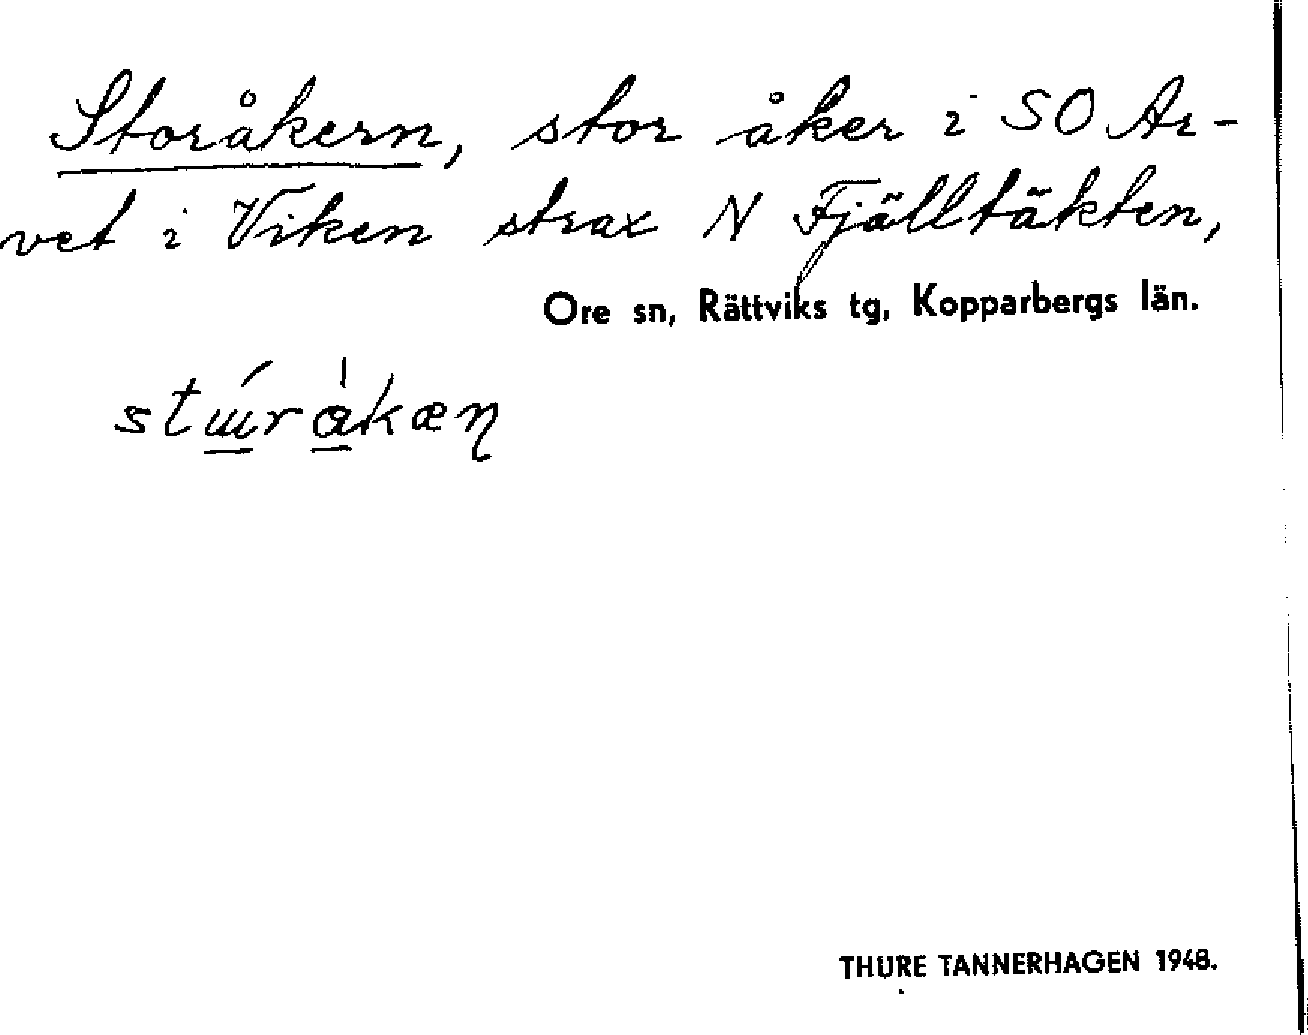 Storåkern, stor åker i SO Ar-
vet i Viken strax N Fjälltäkten,
Ore sn, Rättviks tg, Kopparbergs län.
THURE TANNERHAGEN 1948.